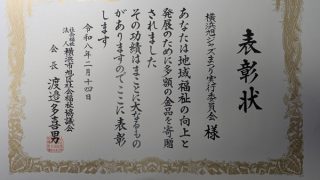 表彰状
横浜旭ジャズまつり実行委員会 様
あなたは地域福祉の向上と
発展のために多額の金品を寄贈
されました
その功績はまことに大なるもの
がありますのでここに表彰
します
令和八年二月十四日
社会福祉法人 横浜市旭区社会福祉協議会
会長 渡邉多喜男